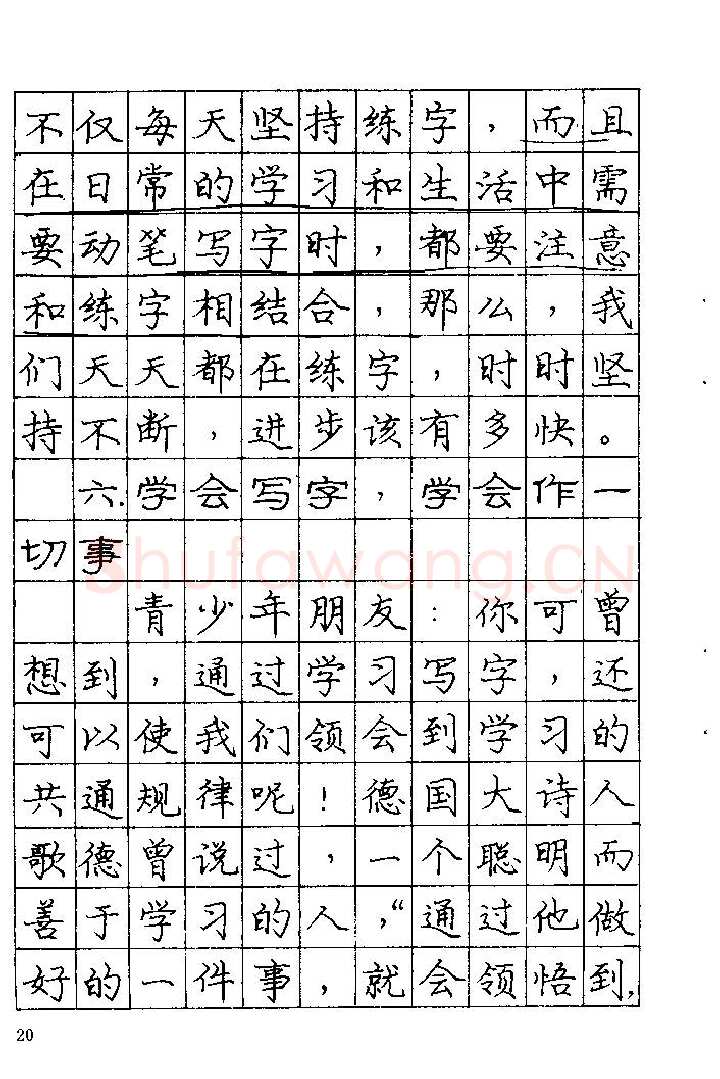 不仅每天坚持练字，而且
在日常的学习和生活中需
要动笔写字时，都要注意
和练字相结合，那么，我
们天天都在练字，时时坚
持不断，进步该有多快。
六.学会写字，学会作一
切事
shufawang.CN
青少年朋友：你可曾
想到，通过学习写字，还
可以使我们领会到学习的
共通规律呢！德国大诗人
歌德曾说过，一个聪明而
善于学习的人，“通过他做
好的一件事，就会领悟到，
20